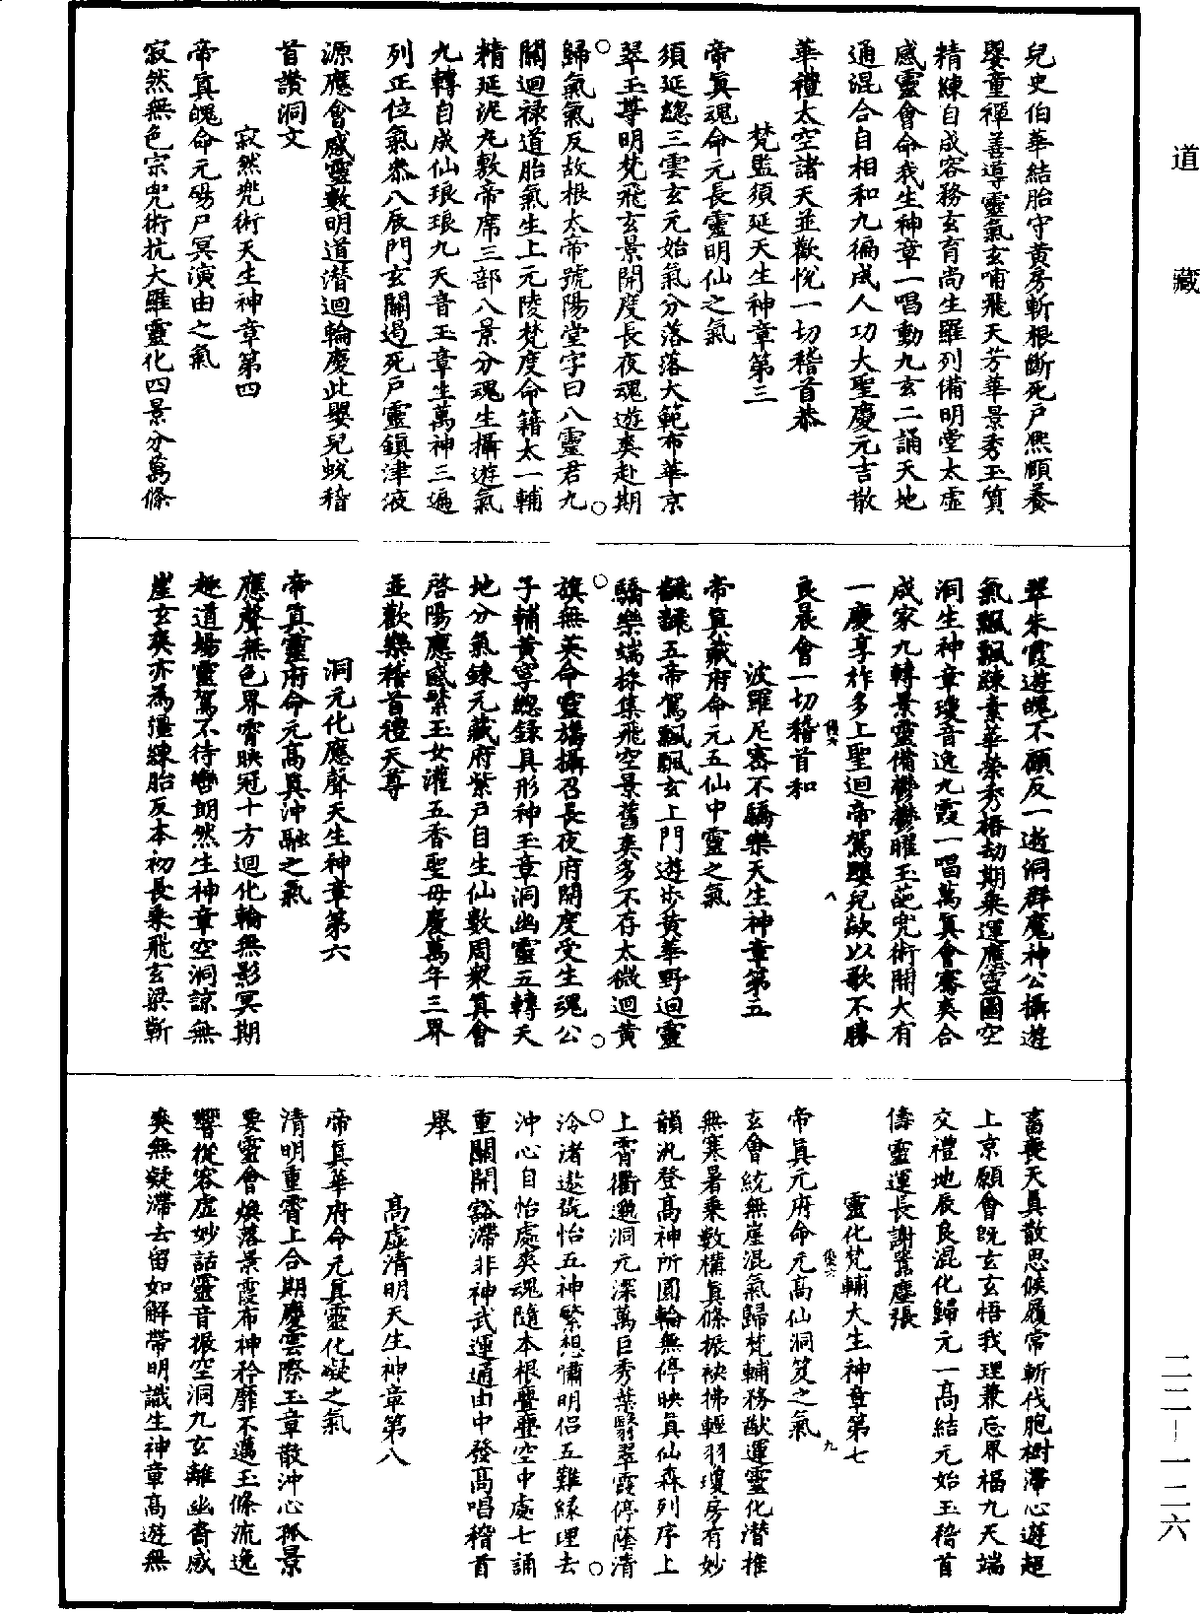 道藏
兒史伯華結胎守黃房斬根斷死戶熙頤養
嬰童禪善導靈氣玄哺飛天芳華景秀玉質
精練自成容務玄育尚生羅列備明堂太虛
感靈會命我生神章一唱動九玄二誦天地
通混合自相和九徧成人功大聖慶元吉散
華禮太空諸天並歡悅一切稽首恭
梵監須延天生神章第三
帝真魂命元長靈明仙之氣
須延總三雲玄元始氣分落落大範布華京
翠玉尊明梵飛玄景開度長夜魂遊爽赴期
歸氣氣反故根太帝號陽堂字曰八靈君九
關迴祿道胎氣生上元陵梵度命籍太一輔
精延泥丸敷帝席三部八景分魂生攝遊氣
九轉自成仙琅琅九天音玉章生萬神三遍
列正位氣忝八辰門玄關遏死戶靈鎮津液
源應會感靈數明道潛迴輪慶此嬰兒蛻稽
首讚洞文
寂然兜術天生神章第四
帝真魄命元碭尸冥演由之氣
寂然無色宗兜術抗大羅靈化四景分萬條
翠朱霞遊魄不顧反一逝洞群魔神公攝遊
氣飄飄踈素華榮秀椿劫期乘運應靈圖空
洞生神章瓊音逸九霞一唱萬真會騫爽合
成家九轉景靈備鬱鬱曜玉葩兜術開大有
一慶享祚多上聖迴帝駕嬰兒欻以歌不勝
良晨會一切稽首和
波羅尼密不驕樂天生神章第五
帝真藏府命元五仙中靈之氣
翻翻五帝駕飄飄玄上門遊步黃華野迴靈
驕樂端採集飛空景舊爽多不存太微迴黃
旗無英命靈旛攝召長夜府開度受生魂公
子輔黃寧總錄具形神玉章洞幽靈五轉天
地分氣鍊元藏府紫戶自生仙數周衆真會
啓陽應感繁玉女灌五香聖母慶萬年三界
並歡樂稽首禮天尊
洞元化應聲天生神章第六
帝真靈府命元高真沖融之氣
應聲無色界霄映冠十方迴化輪無影冥期
趣道場靈駕不待轡朗然生神章空洞諒無
崖玄爽亦為彊練胎反本初長乘飛玄梁斬
畜喪天真散思候履常斬伐胞樹滯心遊超
上京願會既玄玄悟我理兼忘界福九天端
交禮地辰良混化歸元一高結元始玉稽首
儔靈運長謝囂塵張
靈化梵輔大生神章第七
帝真元府命元高仙洞笈之氣
玄會統無崖混氣歸梵輔務猷運靈化潛推
無寒暑乘數構真條振袂拂輕羽瓊房有妙
韻汎登高神所圓輪無停映真仙森列序上
上霄衢邈洞元深萬巨秀葉翳翠霞停蔭清
泠渚遨翫怡五神繁想嘯明侣五難緣理去
沖心自怡處爽魂隨本根亹亹空中處七誦
重關開豁滯非神武運通由中發高唱稽首
舉
高虛清明天生神章第八
帝真華府命元真靈化凝之氣
清明重霄上合期慶雲際玉章散沖心孤景
要靈會煥落景霞布神矜靡不邁玉條流逸
響從容虛妙話靈音振空洞九玄離幽裔感
爽無凝滯去留如解帶明識生神章高遊無
二二一一二六